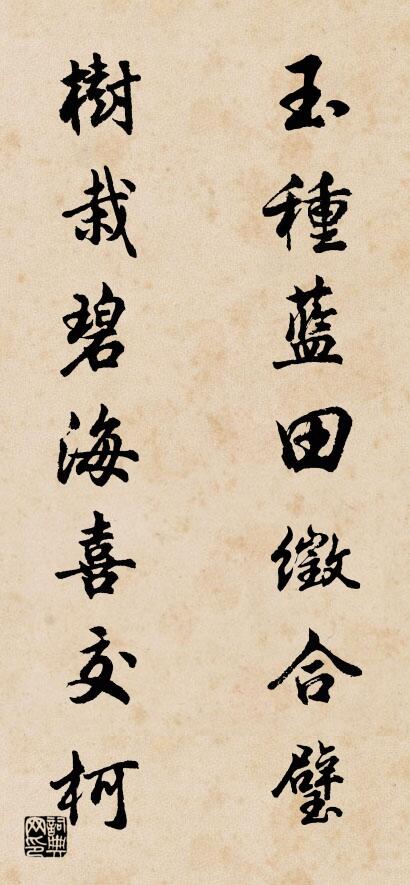 玉種藍田徵合璧
樹栽碧海喜交柯
詞典网印